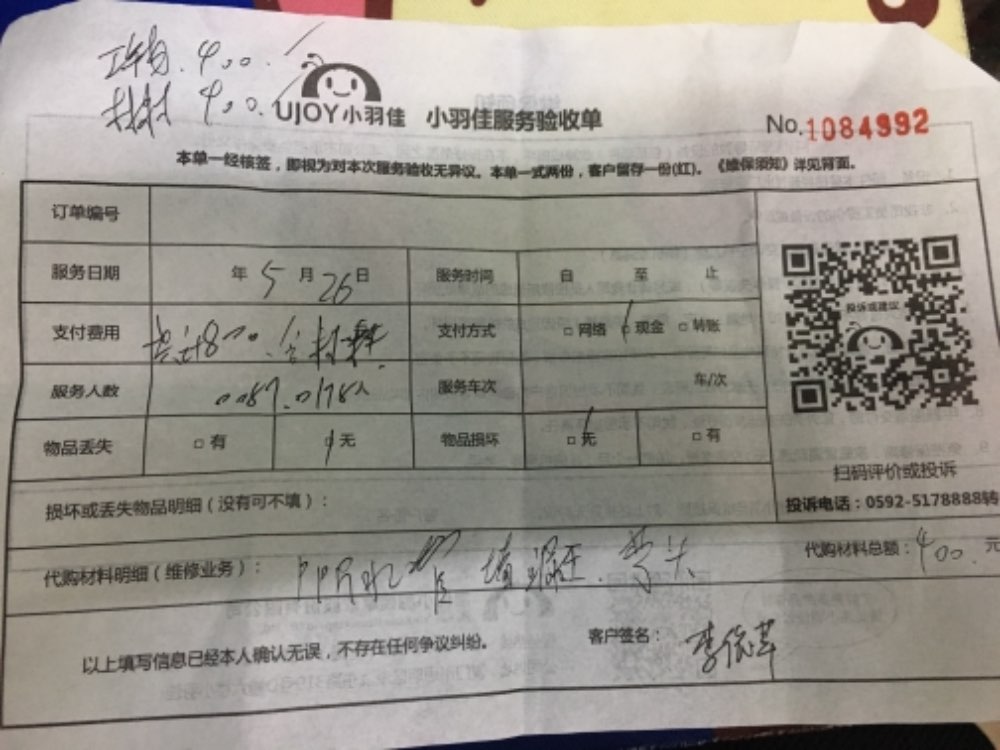 400.
材料 400.
UJOY小羽佳 小羽佳服务验收单 No.1084992
本单一经核签，即视为对本次服务验收无异议。本单一式两份，客户留存一份(红)。《维保须知》详见背面。
订单编号
服务日期 年 5 月 26 日 服务时间 自 至 止
支付费用 共计800.含材料 支付方式 □网络 现金 □转账
投诉或建议
服务人数 0087.0178人 服务车次 车/次
物品丢失 □有 无 物品损坏 □无 □有
扫码评价或投诉
损坏或丢失物品明细（没有可不填）：
投诉电话：0592-5178888转
代购材料明细（维修业务）： PPR水管 弯头 代购材料总额：400.元
以上填写信息已经本人确认无误，不存在任何争议纠纷。 客户签名：